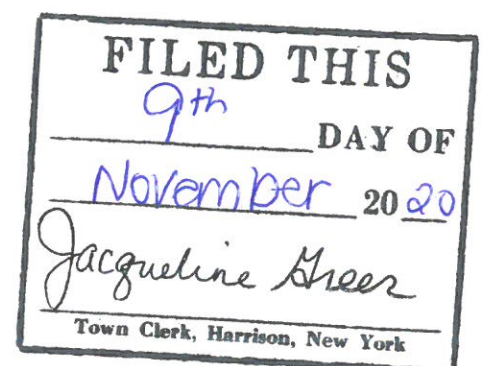 FILED THIS
9th DAY OF
November 20 20
Jacqueline Greer
Town Clerk, Harrison, New York